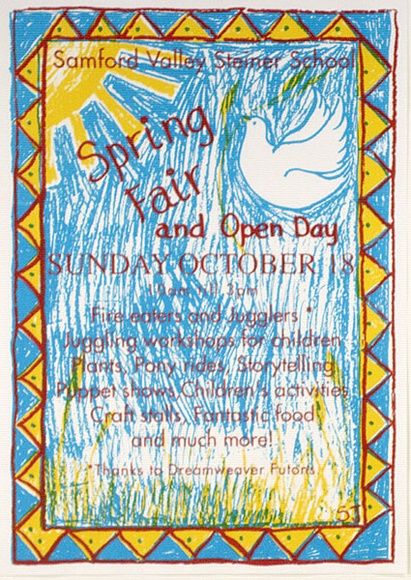 Samford Valley Steiner School
Spring
Fair
and Open Day
SUNDAY OCTOBER 18
10am till 3pm
Fire eaters and Jugglers *
Juggling workshops for children
Plants, Pony rides, Storytelling
Puppet shows, Children's activities
Craft stalls, Fantastic food
and much more!
*Thanks to Dreamweaver Futons